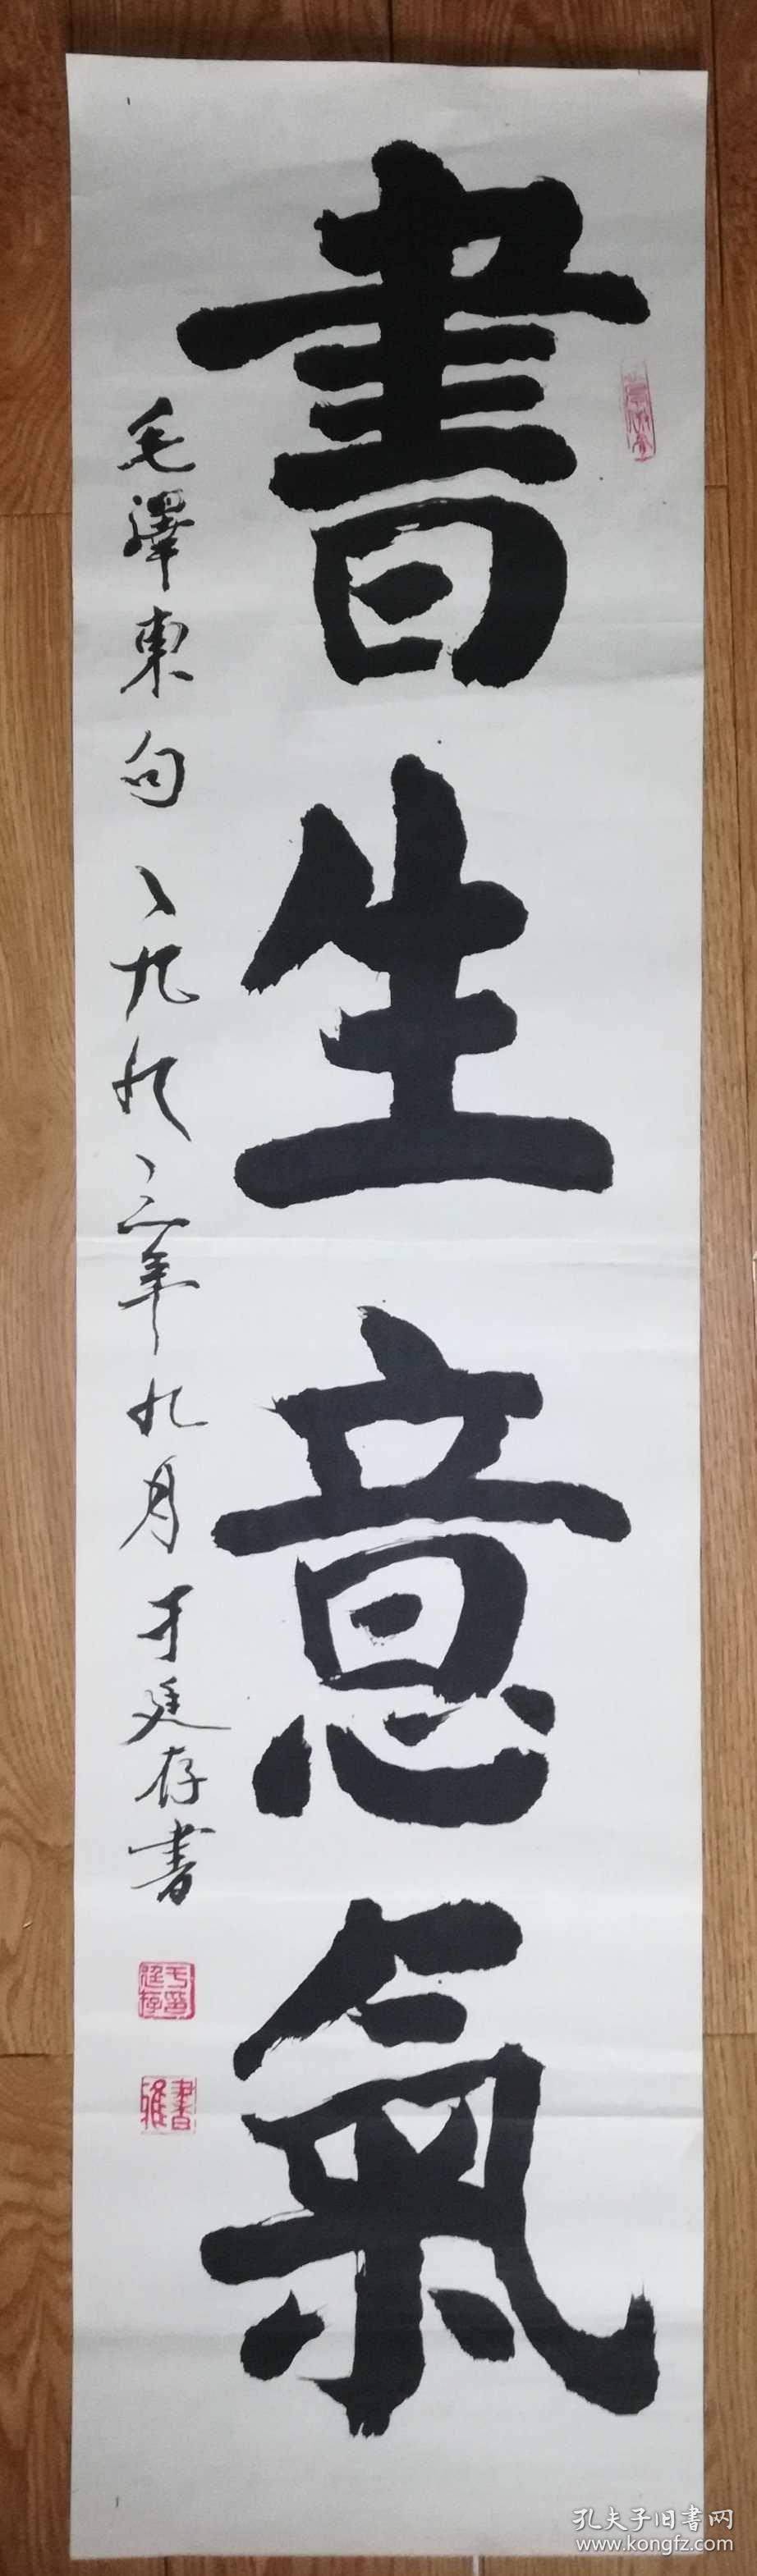 書生意氣
毛澤東句 一九九三年九月 于廷存書
于印廷存
孔夫子旧书网
www.kongfz.com